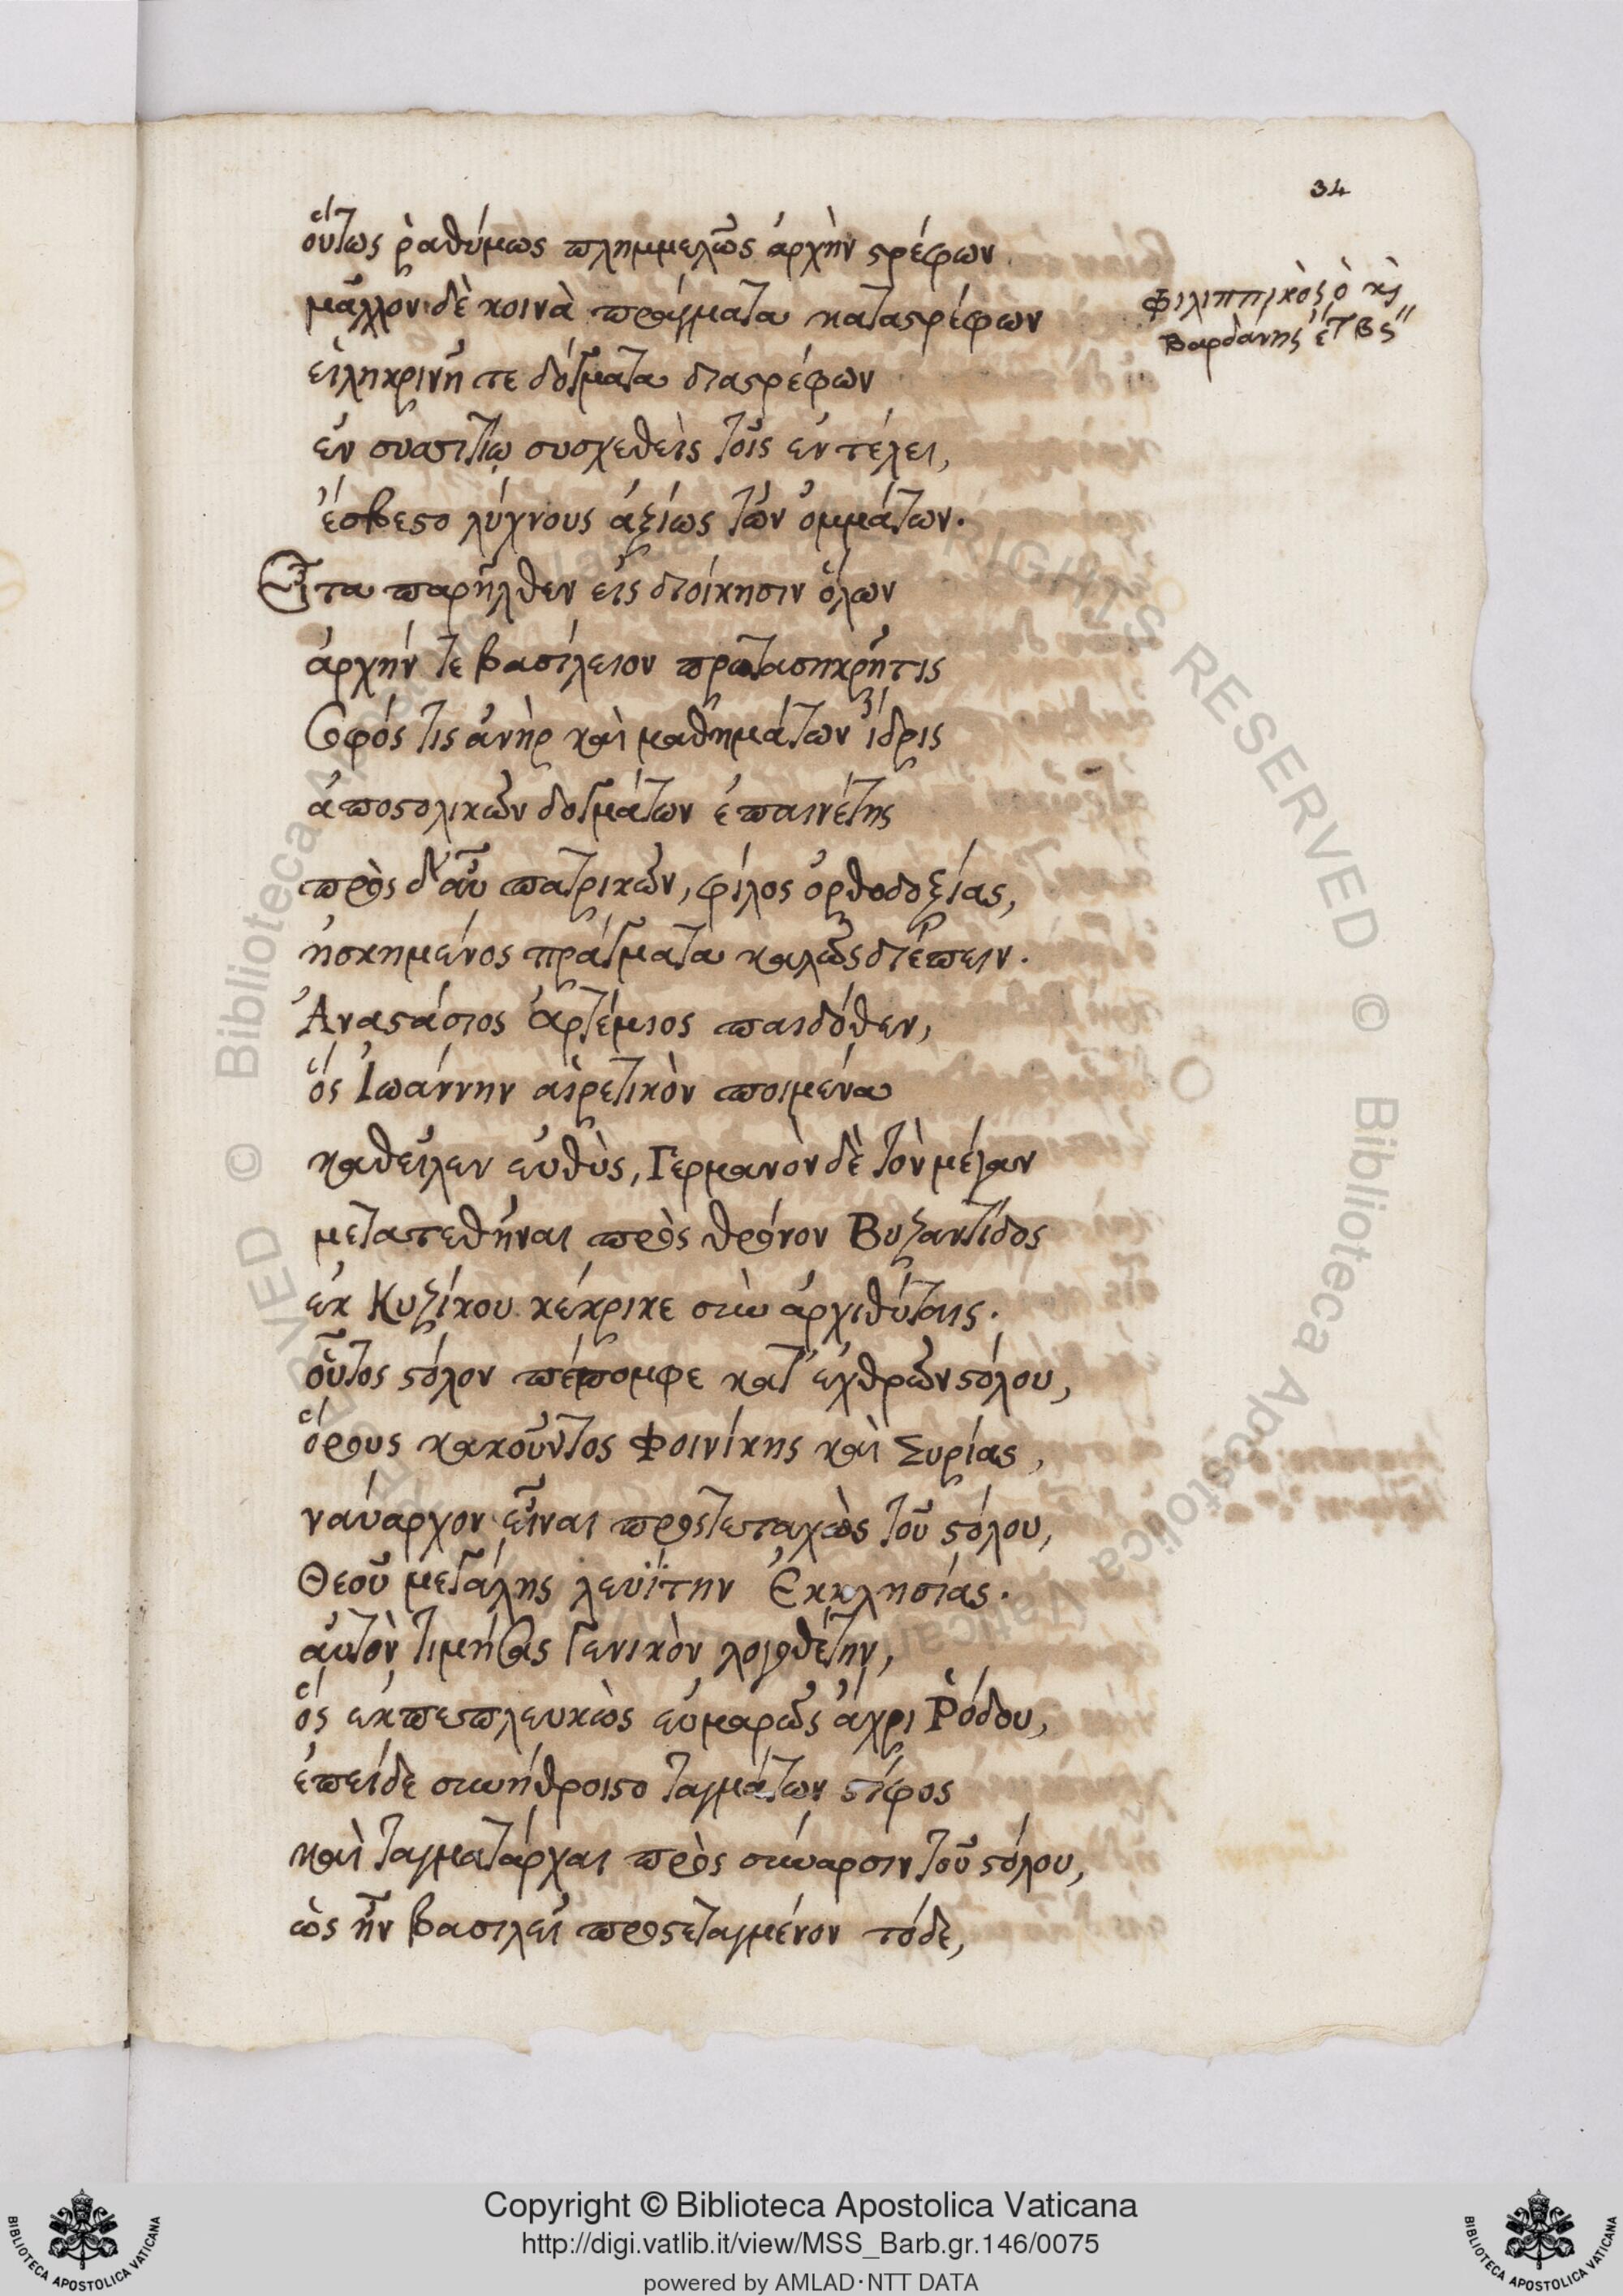 34
οὕτως ῥαθύμως πλημμελῶς ἀρχὴν στρέφων
μᾶλλον δὲ κοινὰ πράγματα καταστρέφων
Φιλιππικὸς ὁ κὶ
Βαρδάνης ἔτ β ϛ''
εἰληκρινῆ τε δόγματα διαστρέφων
ἐν συσσιτίῳ συσχεθεὶς τοῖς ἐν τέλει,
ἔσβεστο λύχνους ἀξίως τῶν ὀμμάτων.
Εἶτα παρῆλθεν εἰς διοίκησιν ὅλων
ἀρχήν τε βασίλειον πρωτασηκρῆτις
σοφός τις ἀνὴρ καὶ μαθημάτων ἴδρις
ἀποστολικῶν δογμάτων ἐπαινέτης
πρὸς δ' αὖ πατρικῶν, φίλος ὀρθοδοξίας,
ἠσκημένος πράγματα καλῶς διέπειν.
Ἀναστάσιος Ἀρτέμιος παιδόθεν,
ὅς Ἰωάννην αἱρετικὸν ποιμένα
καθεῖλεν εὐθὺς, Γερμανὸν δὲ τὸν μέγαν
μετατεθῆναι πρὸς θρόνον Βυζαντίδος
ἐκ Κυζίκου κέκρικε σὺν ἀρχιθύταις.
οὗτος στόλον πέπομφε κατ' ἐχθρῶν στόλου,
ὅρους κακοῦντος Φοινίκης καὶ Συρίας,
ναύαρχον εἶναι προστεταχὼς τοῦ στόλου,
Θεοῦ μεγάλης λευΐτην Ἐκκλησίας.
αὐτὸν τιμήσας γενικὸν λογοθέτην,
ὅς ἐκπεπλευκὼς εὐμαρῶς ἄχρι Ῥόδου,
ἐπείδε συνήθροιστο ταγμάτων στίφος
καὶ ταγματάρχαι πρὸς σύναρσιν τοῦ στόλου,
ὡς ἦν βασιλεῖ προστεταγμένον τόδε,
Copyright © Biblioteca Apostolica Vaticana
http://digi.vatlib.it/view/MSS_Barb.gr.146/0075
powered by AMLAD·NTT DATA
BIBLIOTECA APOSTOLICA VATICANA
BIBLIOTECA APOSTOLICA VATICANA